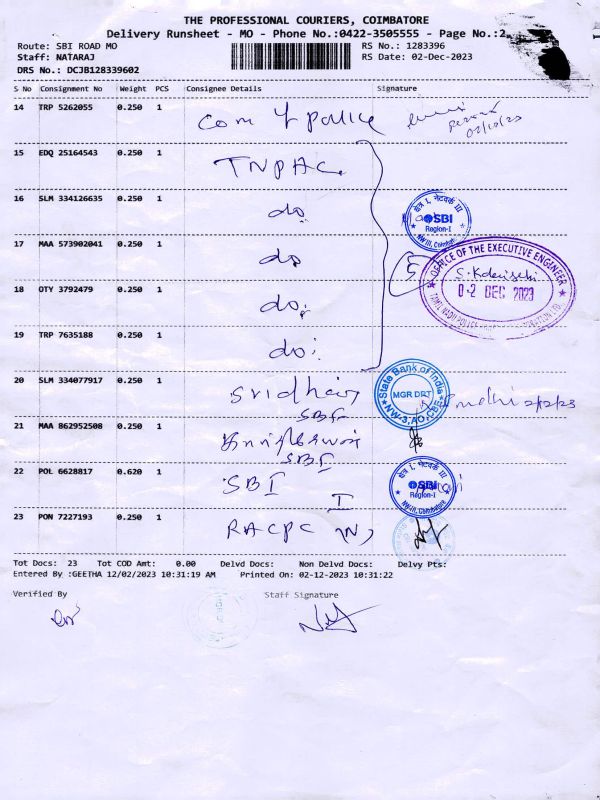 THE PROFESSIONAL COURIERS, COIMBATORE
Delivery Runsheet - MO - Phone No.:0422-3505555 - Page No.:2
Route: SBI ROAD MO
RS No.: 1283396
Staff: NATARAJ
RS Date: 02-Dec-2023
DRS No.: DCJB128339602
S No Consignment No Weight PCS Consignee Details Signature
14 TRP 5262055 0.250 1 Com of police
15 EDQ 25164543 0.250 1 TNPHC.
16 SLM 334126635 0.250 1 do
क्षेत्र I, नेटवर्क III
SBI
Region-I
NW III, Coimbatore
17 MAA 573902041 0.250 1 do
5
OFFICE OF THE EXECUTIVE ENGINEER
02 DEC 2023
18 OTY 3792479 0.250 1 do
19 TRP 7635188 0.250 1 do
20 SLM 334077917 0.250 1 Sridhar
SBI
State Bank of India
MGR DRT
NW-3, AO, CBE
21 MAA 862952508 0.250 1
SBI
22 POL 6628817 0.620 1 SBI
I
क्षेत्र I, नेटवर्क III
SBI
Region-I
NW III, Coimbatore
23 PON 7227193 0.250 1 RACPC
Tot Docs: 23 Tot COD Amt: 0.00 Delvd Docs: Non Delvd Docs: Delvy Pts:
Entered By :GEETHA 12/02/2023 10:31:19 AM Printed On: 02-12-2023 10:31:22
Verified By Staff Signature